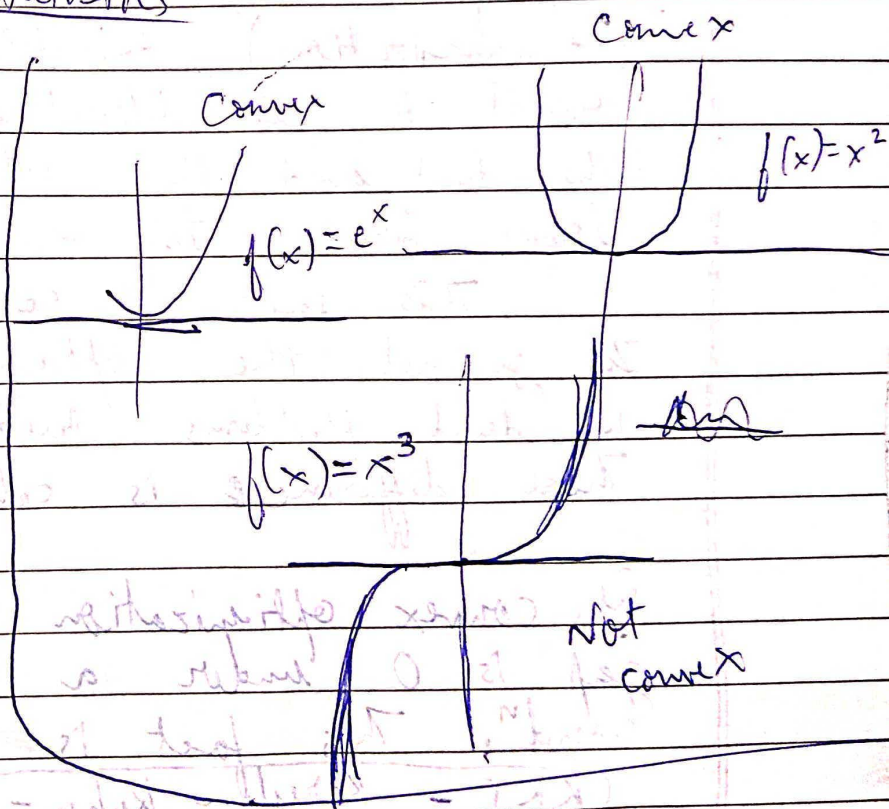 Convex
Convex
f(x) = x²
f(x) = eˣ
f(x) = x³
Not
convex